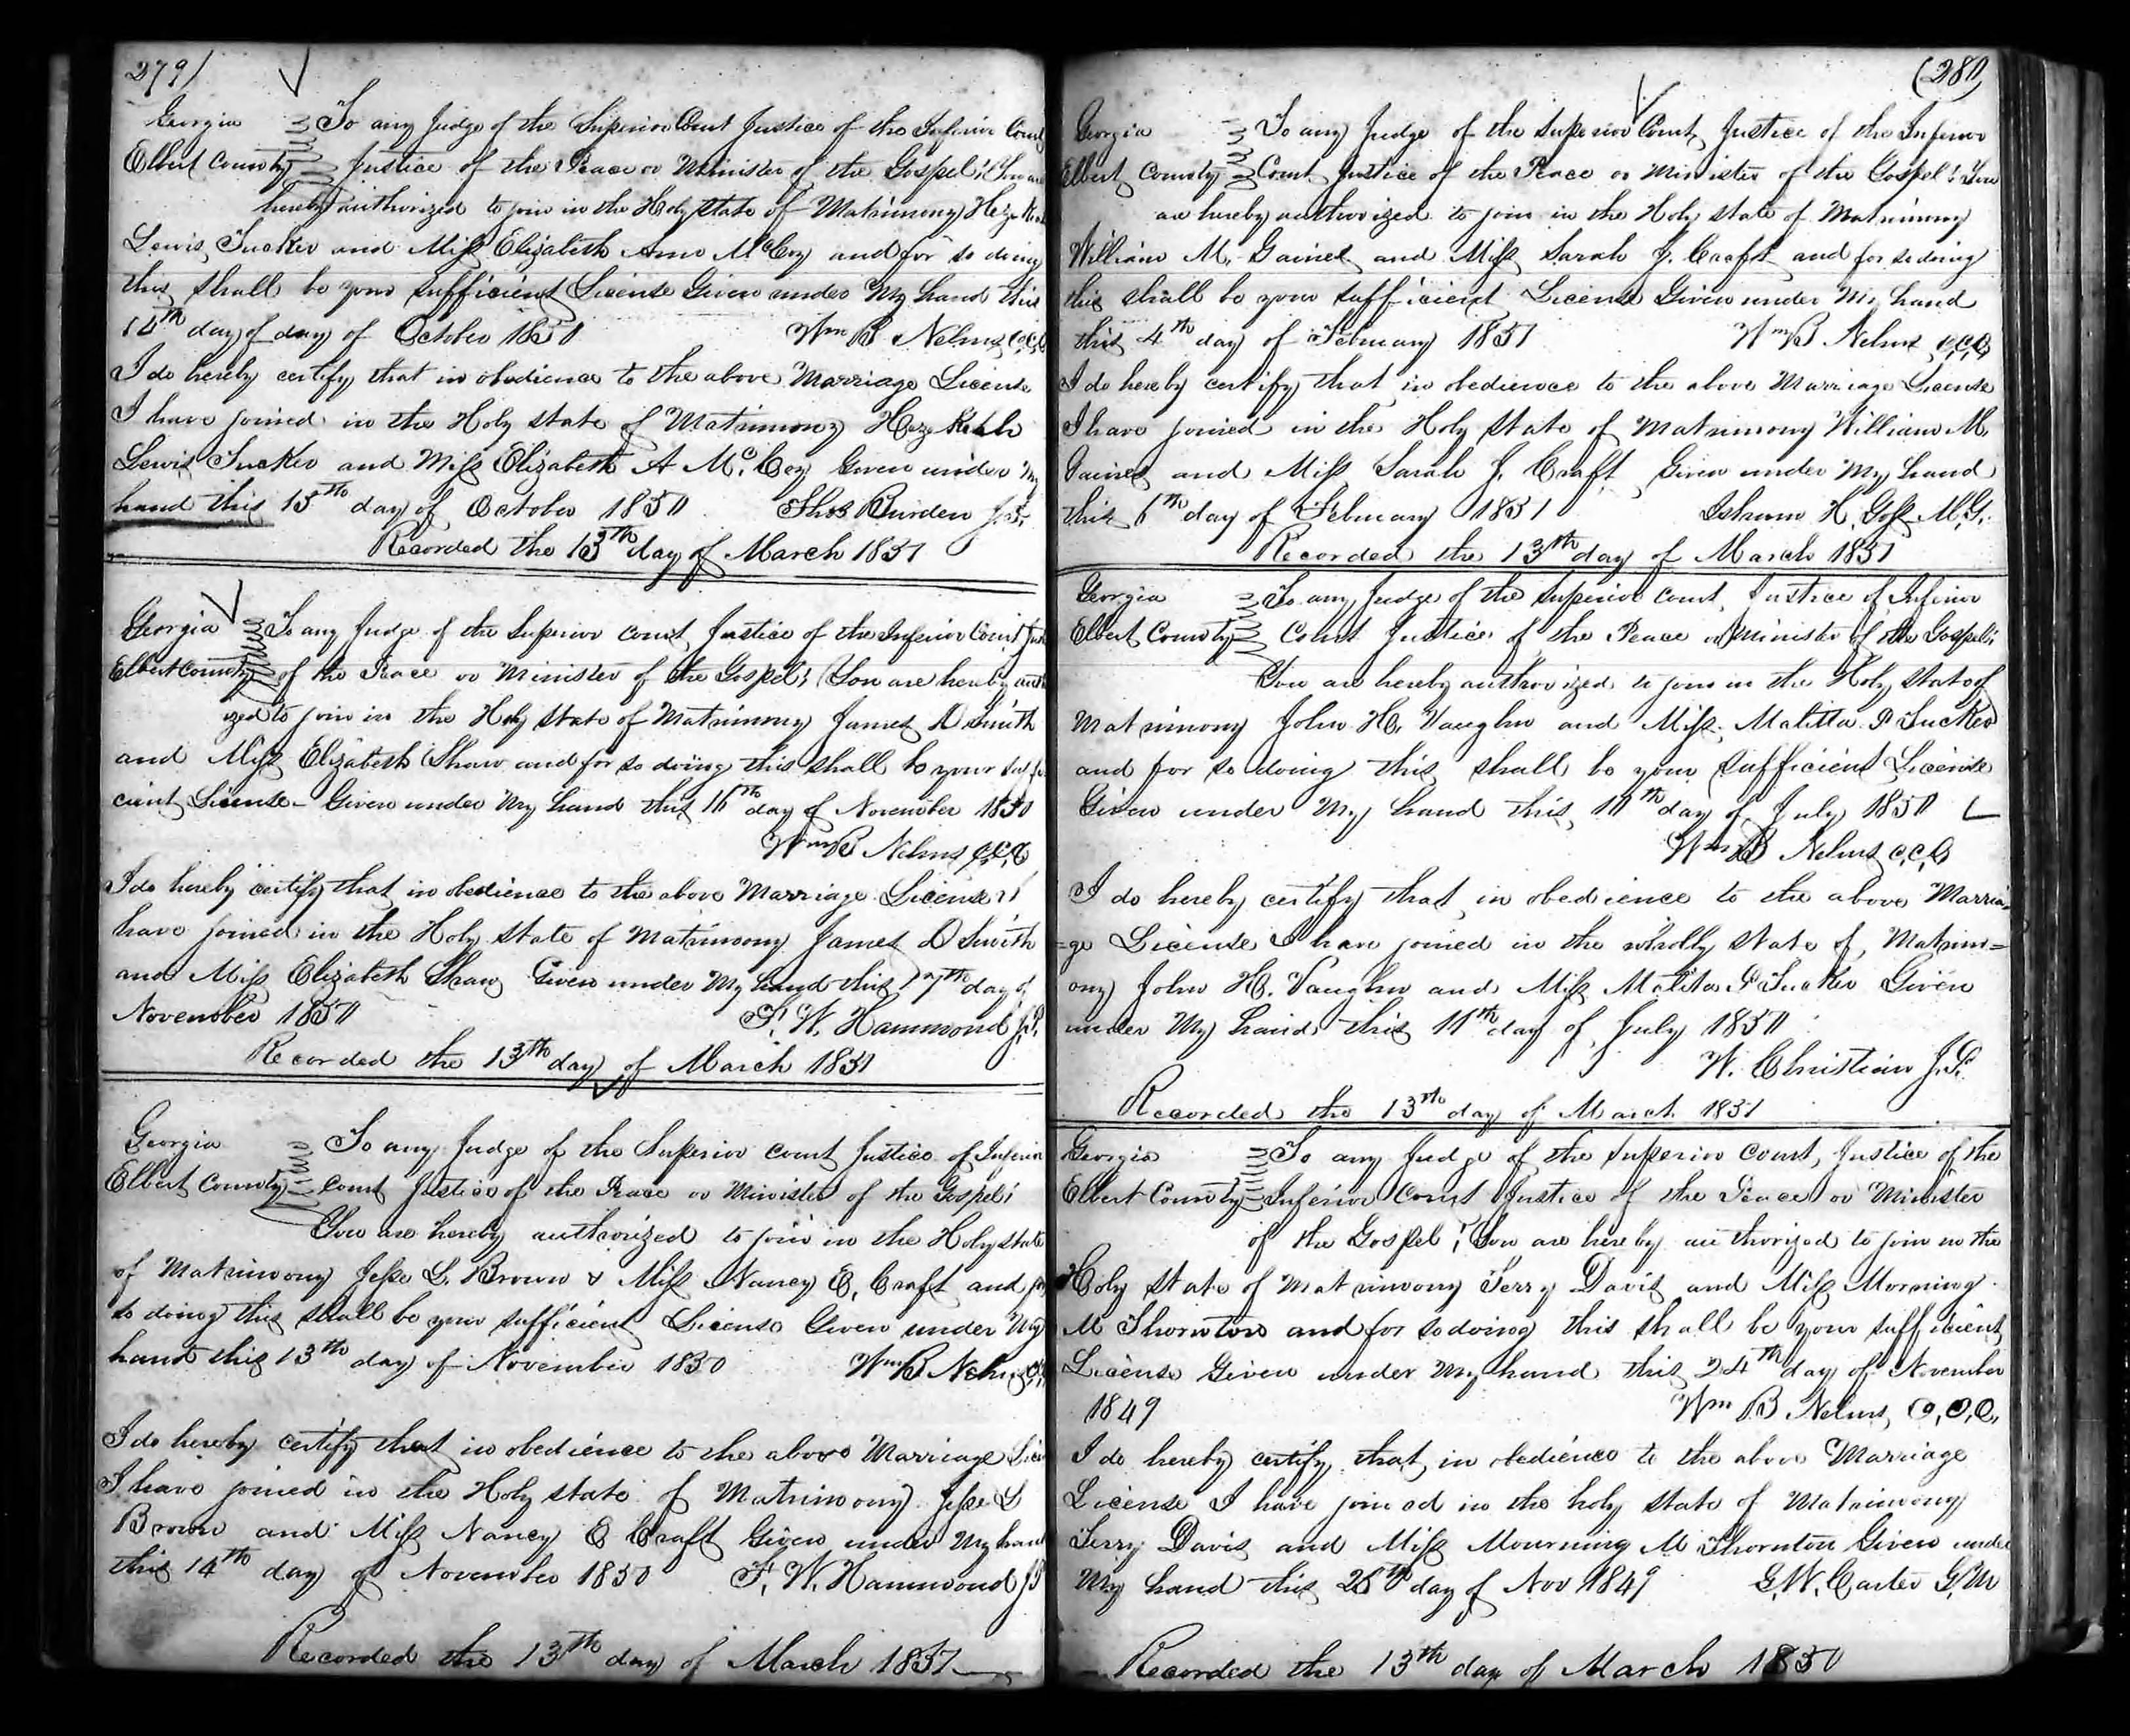 279)
Georgia To any Judge of the Superior Court Justice of the Inferior Court
Elbert County Justice of the Peace or Minister of the Gospel; You are
hereby authorized to join in the Holy state of Matrimony
Lewis Tucker and Miss Elizabeth Ann McCoy and for so doing
this shall be your sufficient License Given under My hand this
14th day of day of October 1850 Wm B Nelms c.c.o
I do hereby certify that in obedience to the above Marriage License
I have joined in the Holy state of Matrimony Hezekiah
Lewis Tucker and Miss Elizabeth A McCoy Given under My
hand this 15th day of October 1850 Thos Burden J.P.
Recorded the 13th day of March 1851
Georgia To any Judge of the Superior court Justice of the Inferior Court
Elbert County of the Peace or Minister of the Gospel; You are hereby
ized to join in the Holy state of Matrimony James D Smith
and Miss Elizabeth Shaw and for so doing this shall be your suffi
cient License - Given under My hand this 16th day of November 1850
Wm B Nelms c.c.o
I do hereby certify that in obedience to the above Marriage License I
have joined in the Holy state of Matrimony James D Smith
and Miss Elizabeth Shaw Given under My hand this 17th day of
November 1850 F. W. Hammond J.P.
Recorded the 13th day of March 1851
Georgia To any Judge of the Superior court Justice of Inferior
Elbert County Court Justice of the Peace or Minister of the Gospel;
You are hereby authorized to join in the Holy state
of Matrimony Jesse L. Brown & Miss Nancy E. Craft and for
so doing this shall be your sufficient License Given under My
hand this 13th day of November 1850 Wm B Nelms
I do hereby certify that in obedience to the above Marriage
I have joined in the Holy state of Matrimony Jesse L
Brown and Miss Nancy E Craft Given under My hand
this 14th day of November 1850 F. W. Hammond JP
Recorded the 13th day of March 1851
(280)
Georgia To any Judge of the Superior Court, Justice of the Inferior
Elbert County Court Justice of the Peace or Minister of the Gospel; You
are hereby authorized to join in the Holy state of Matrimony
William M. Gaines and Miss Sarah J. Craft and for so doing
this shall be your sufficient License Given under My hand
this 4th day of February 1851 Wm B Nelms c.c.o
I do hereby certify that in obedience to the above Marriage License
I have joined in the Holy state of Matrimony William M.
Gaines and Miss Sarah J. Craft Given under My hand
this 6th day of February 1851 Isham H. Goss M.G.
Recorded the 13th day of March 1851
Georgia To any Judge of the Superior court, Justice of Inferior
Elbert County Court Justice of the Peace or Minister of the Gospel;
You are hereby authorized to join in the Holy state of
Matrimony John H. Vaughn and Miss Malitta P Tucker
and for so doing this shall be your sufficient License
Given under My hand this 10th day of July 1850
Wm B Nelms c.c.o
I do hereby certify that in obedience to the above Marria-
-ge License I have joined in the wholly state of Matrim=
ony John H. Vaughn and Miss Malita P Tucker Given
under My hand this 11th day of July 1850
W. Christian J.P.
Recorded the 13th day of March 1851
Georgia To any Judge of the Superior Court, Justice of the
Elbert County Inferior Court Justice of the Peace or Minister
of the Gospel; You are hereby authorized to join in the
Holy state of Matrimony Terry Davis and Miss Morning
M Thornton and for so doing this shall be your sufficient
License Given under My hand this 24th day of November
1849 Wm B Nelms, C.C.O.
I do hereby certify that in obedience to the above Marriage
License I have joined in the holy state of Matrimony
Terry Davis and Miss Mourning M Thornton Given under
My hand this 25th day of Nov 1849 G. W. Carter G.M
Recorded the 13th day of March 1850